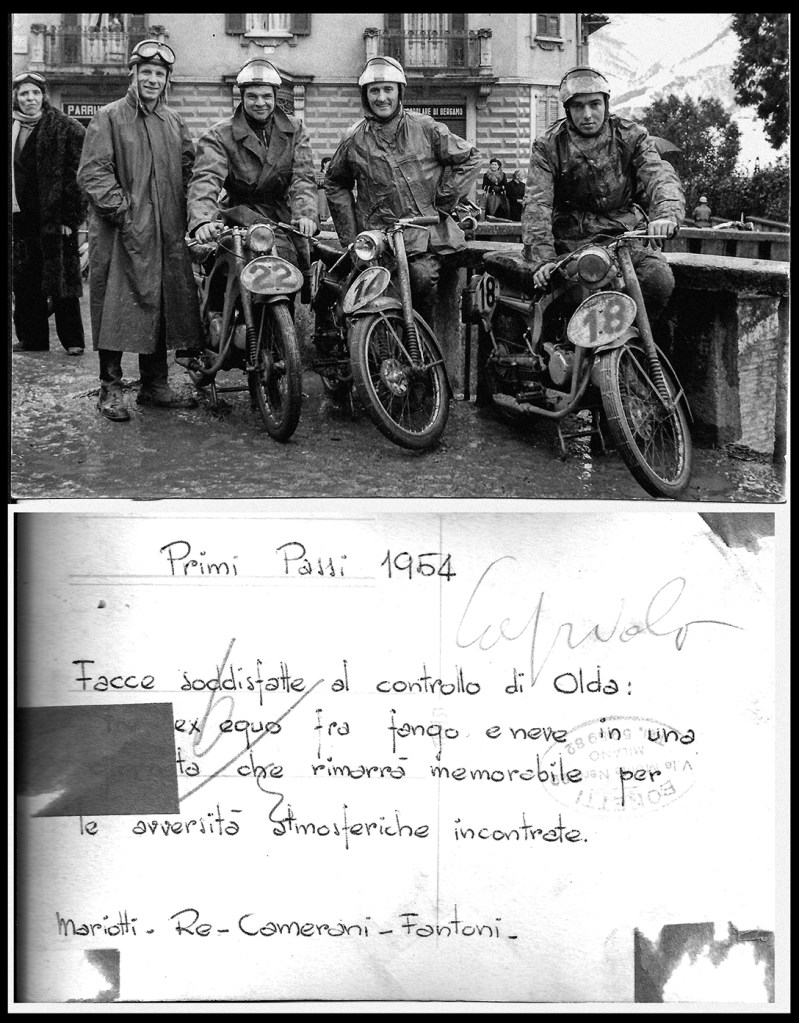 PARRU
POPOLARE DI BERGAMO
22
18
18
Primi Passi 1954
Facce soddisfatte al controllo di Olda:
ex equo fra fango e neve in una
ta che rimarrà memorabile per
le avversità atmosferiche incontrate.
Mariotti - Re - Camerani - Fantoni -
MILANO